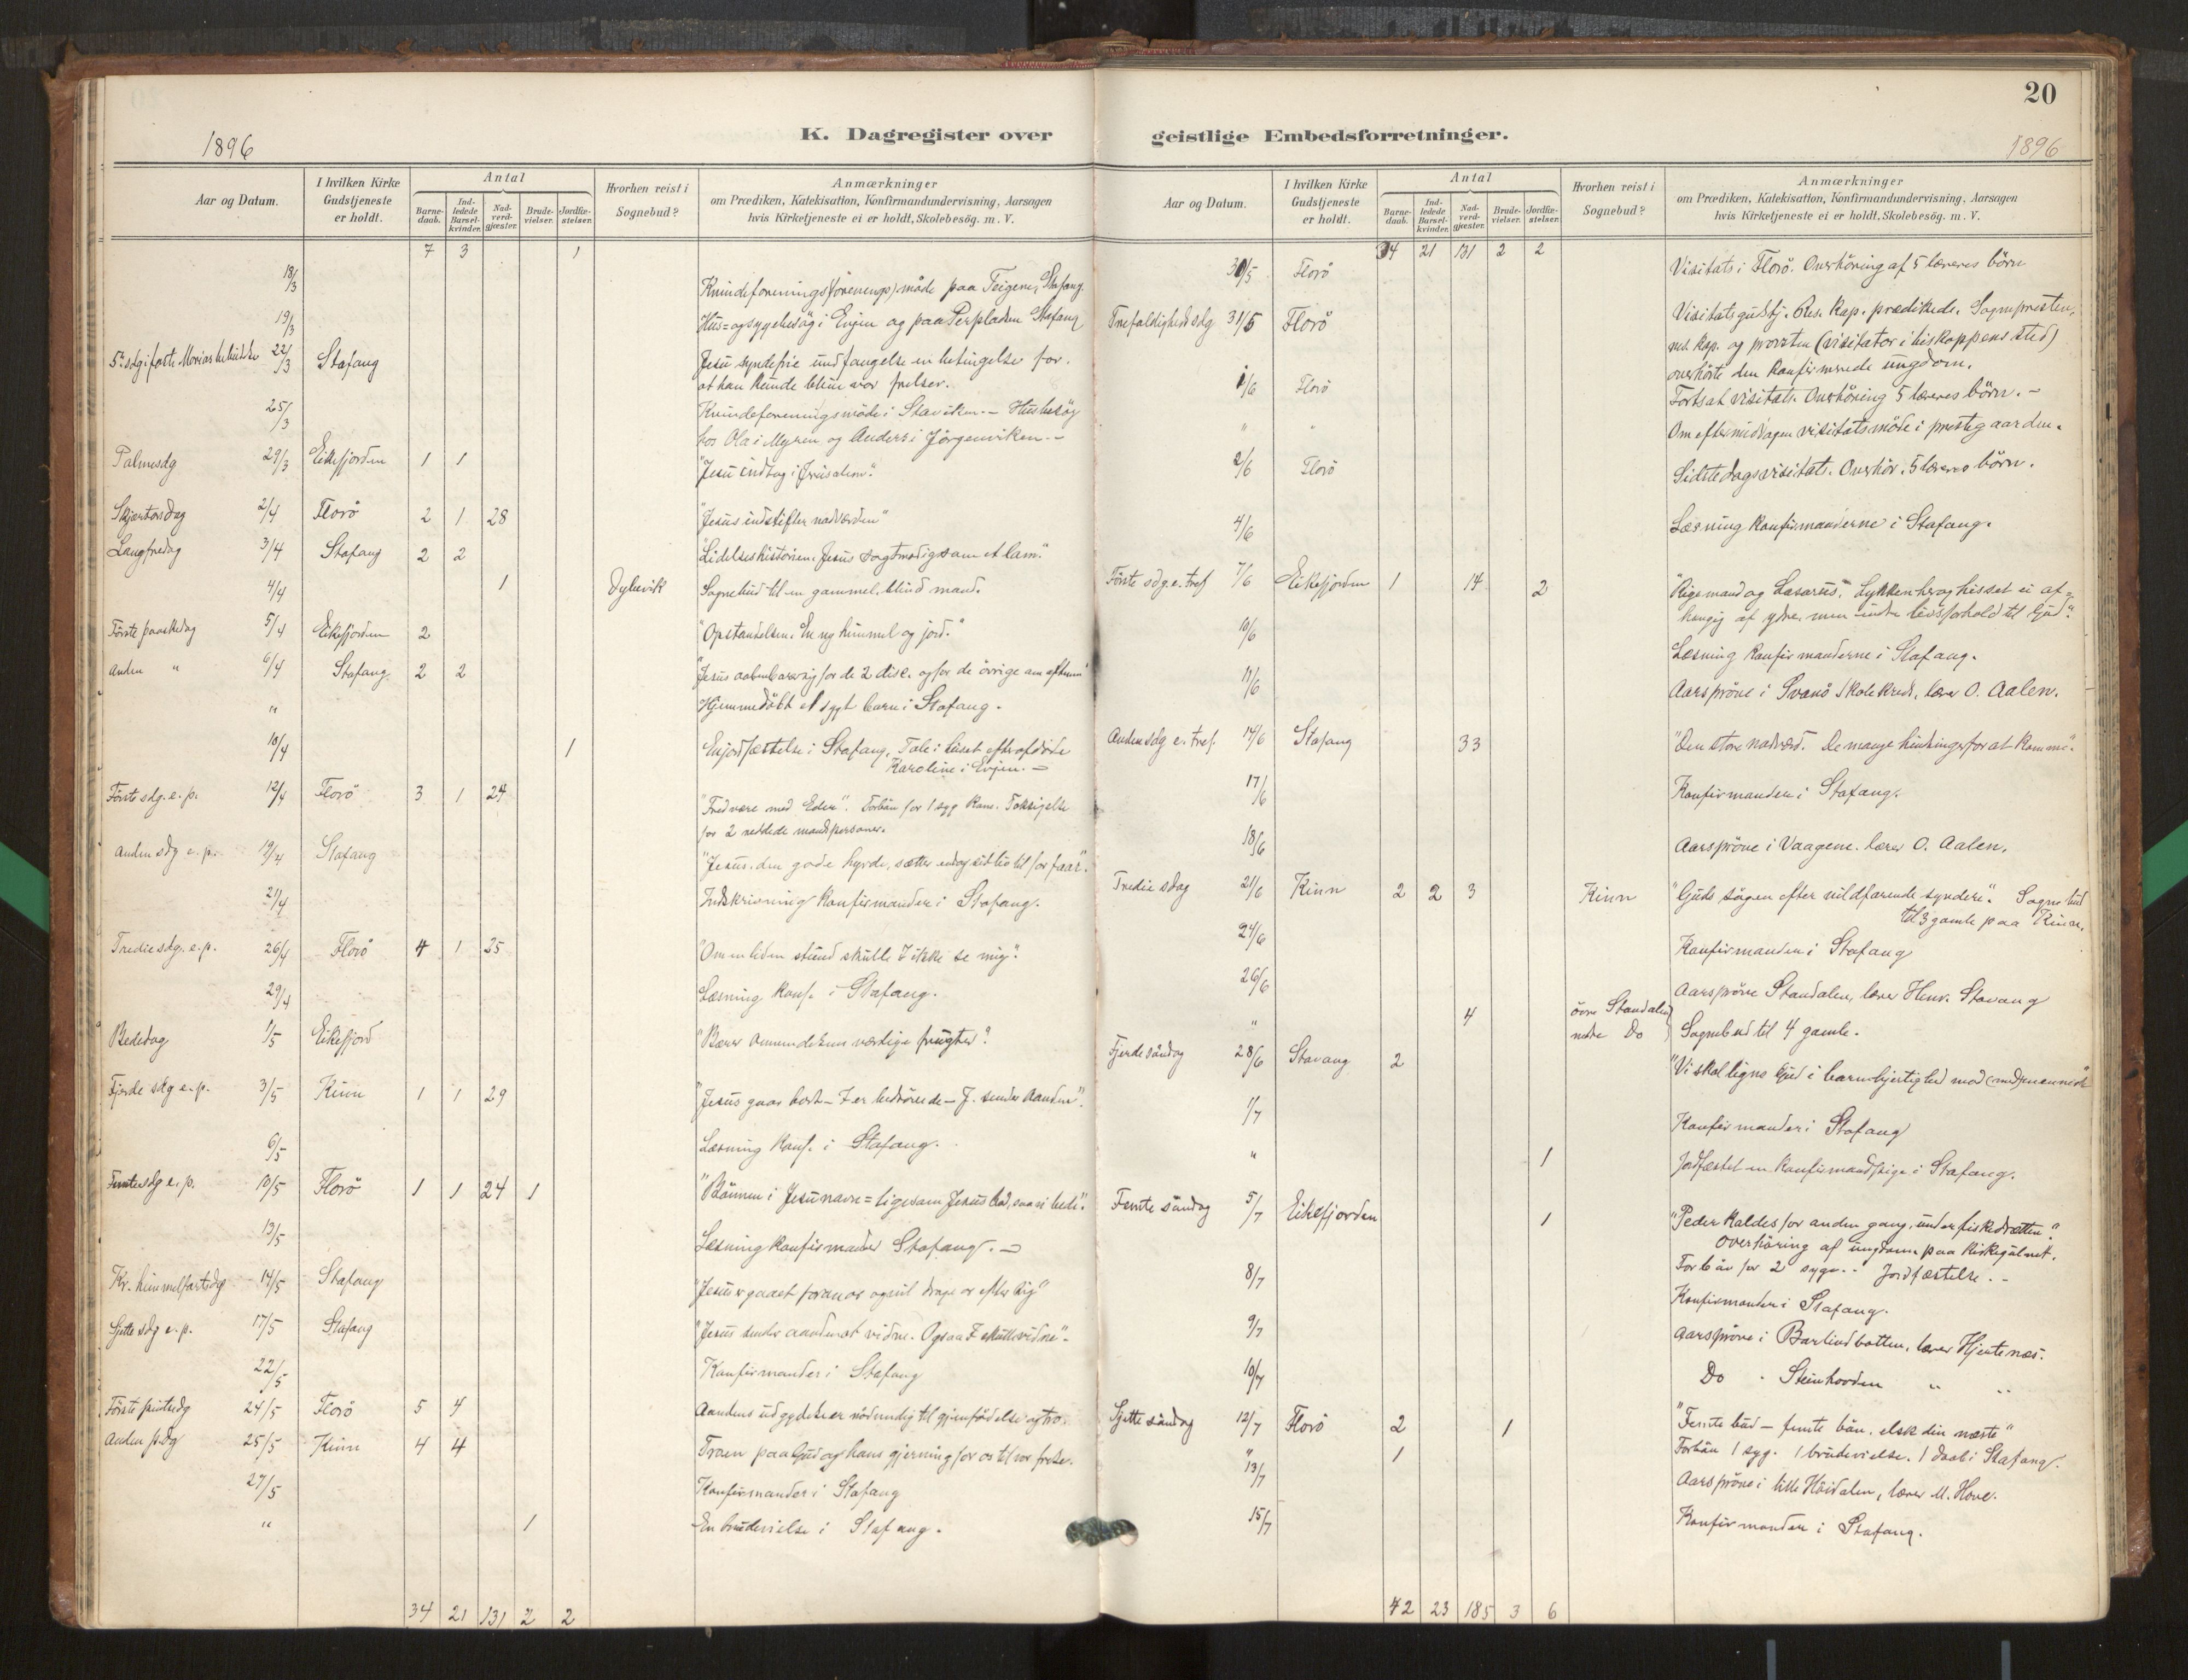 20
K. Dagregister over geistlige Embedsforretninger.
1896
1896
Aar og Datum.
I hvilken Kirke Gudstjeneste er holdt.
Antal
Barne-daab.
Ind-ledede Barsel-kvinder.
Nad-verd-gjæster.
Brude-vielser.
Jordfæ-stelser.
Hvorhen reist i Sognebud?
Anmærkninger
om Prædiken, Katekisation, Konfirmandundervisning, Aarsagen
hvis Kirketjeneste ei er holdt, Skolebesög. m. V.
7 3 1
18/3 Kvindeforenings møde paa Teigene, Stafang.
19/3 Hus= og sygebesög i Evjen og paa Perpladsen Stafang
22/3 Stafang Jesu syndefrie undfangelse en betingelse for.
at han kunde blive vor frelser.
25/3 Kvindeforeningsmöde i Staviken. - Husbesög
hos Ola i Myren og Anders i Jörgenviken. -
Palmesdg 29/3 Eikefjorden 1 1 "Jesu indtog i Jerusalem".
Skjærtorsdag 2/4 Florö 2 1 28 "Jesus indstifter nadverden"
Langfredag 3/4 Stafang 2 2 "Lidelseshistorien. Jesus sagtmodig som et lam."
4/4 1 Dylevik Sognebud til en gammel, blind mand.
Förste paaskedag 5/4 Eikefjorden 2 "Opstandelsen. En ny himmel og jord."
Anden " 6/4 Stafang 2 2 "Jesus aabenbarer sig for de 2 disc. og for de övrige om aftenen"
" Hjemmedöbt et sygt barn i Stafang.
10/4 1 En jordfæstelse i Stafang, Tale i huset efter afdöde
Karoline i Evjen. -
Förste sdg. e. p. 12/4 Florö 3 1 24 "Fred være med Eder". Forbön for 1 syg kone. Taksigelse
for 2 reddede mandspersoner.
Anden sdg e. p. 19/4 Stafang "Jesus, den gode hyrde, sætter endog sit liv til for faar".
21/4 Indskrivning konfirmander i Stafang.
Tredie sdg. e. p. 26/4 Florö 4 1 25 "Om en liden stund skulle I ikke se mig".
29/4 Læsning konf. i Stafang.
Bededag 1/5 Eikefjord "Bærer omvendelsens værdige frugter".
Fjerde sdg e. p. 3/5 Kinn 1 1 29 "Jesus gaar bort - I er bedrövede - J. sender Aanden".
6/5 Læsning konf. i Stafang.
Femte sdg e. p. 10/5 Florö 1 1 24 1 "Bönnen i Jesu navn = ligesom Jesus bad, saa vi bede".
13/5 Læsning konfirmander Stafang. -
Kr. himmelfartsdg 14/5 Stafang "Jesus er gaaet foran os og vil drage os efter sig"
Sjette sdg e. p. 17/5 Stafang "Jesus sender aanden at vidne. Ogsaa I skulle vidne".
22/5 Konfirmander i Stafang
Förste pintsedg 24/5 Florö 5 4 Aandens udgydelse er nödvendig til gjenfödelse og tro.
Anden p.dg 25/5 Kinn 4 4 Troen paa Gud og hans gjerning for os til vor frelse.
27/5 Konfirmander i Stafang
" 1 En brudevielse i Stafang.
34 21 131 2 2
Aar og Datum.
I hvilken Kirke Gudstjeneste er holdt.
Antal
Barne-daab.
Ind-ledede Barsel-kvinder.
Nad-verd-gjæster.
Brude-vielser.
Jordfæ-stelser.
Hvorhen reist i Sognebud?
Anmærkninger
om Prædiken, Katekisation, Konfirmandundervisning, Aarsagen
hvis Kirketjeneste ei er holdt, Skolebesög. m. V.
34 21 131 2 2
30/5 Florö Visitats i Florö. Overhöring af 5 læreres börn
Trefoldigheds sdg 31/5 Florö Visitatsgudstj. Res. kap. prædikede. Sognepresten,
res. kap. og provsten (visitator i biskoppens sted)
overhörte den konfirmerede ungdom.
1/6 Florö Fortsat visitats. Overhöring 5 læreres börn. -
" " Om eftermiddagen visitatsmöde i prestegaarden.
2/6 Florö Sidste dags visitats. Overhör. 5 læreres börn.
4/6 Læsning konfirmanderne i Stafang.
Förste sdg. e. tref 7/6 Eikefjorden 1 14 2 "Rige mand og Lasarus". Lykken heroghisset ei af=
hængig af ydre, men indre livsforhold til Gud".
10/6 Læsning konfirmanderne i Stafang.
11/6 Aarspröve i Svanö skolekreds, lærer O. Aalen.
Anden sdg e. tref. 14/6 Stafang 33 "Den store nadverd. De mange hindringer for at komme".
17/6 Konfirmander i Stafang.
18/6 Aarspröve i Vaagene. lærer O. Aalen.
Tredie sdag 21/6 Kinn 2 2 3 Kinn "Guds sögen efter vildfarende syndere". Sognebud
til 3 gamle paa Kinn.
24/6 Konfirmander i Stafang
26/6 Aarspröve Standalen, lærer Henr. Stavang
" 4 övre Standalen nedre Do Sognebud til 4 gamle.
Fjerde söndag 28/6 Stavang 2 "Vi skal ligne Gud i barmhjertighed mod (med)mennesk"
1/7 Konfirmander i Stafang
" 1 Jordfæstet en konfirmandpige i Stafang.
Femte söndag 5/7 Eikefjorden 1 "Peder kaldes for anden gang, under fiskedrætten".
Overhöring af ungdom paa kirkegulvet.
Forbön for 2 syge. - Jordfæstelse. -
8/7 Konfirmander i Stafang.
9/7 Aarspröve i Barlindbotten, lærer Hjertenæs.
10/7 Do " Steinhovden " "
Sjette söndag 12/7 Florö 2 1 "Femte bud - femte bön. elsk din næste"
" 1 Forbön 1 syg. 1 brudevielse. 1 daab i Stafang.
13/7 Aarspröve i lille Höidalen, lærer M. Hove.
15/7 Konfirmander i Stafang.
42 23 185 3 6